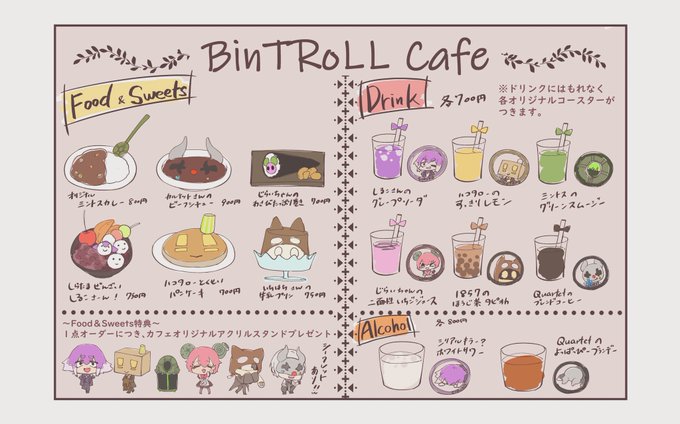 BinTRoLL Cafe
Food & Sweets
オリジナル
ミントスカレー 800円
カルテットさんの
ビーフシチュー 900円
じらいちゃんの
わさびたっぷり巻き 700円
しらたまぜんざい
しるこさーん! 750円
ハコタローとくせい
パンケーキ 700円
いちはちさんの
牛乳プリン 750円
~Food&Sweets特典~
1点オーダーにつき、カフェオリジナルアクリルスタンドプレゼント
シークレット
あり!!
Drink 各700円
※ドリンクにはもれなく
各オリジナルコースターが
つきます。
しるこさんの
グレープソーダ
ハコタローの
すっきりレモン
ミントスの
グリーンスムージー
じらいちゃんの
二面性いちごジュース
1857の
ほうじ茶タピオカ
Quartetの
ブレンドコーヒー
Alcohol 各800円
シリアルキラー?
ホワイトサワー
Quartetの
よっぱっぴーブランデー